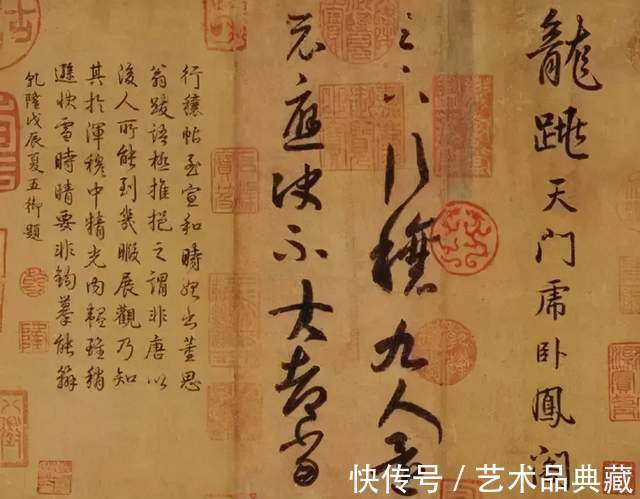 龍跳天門虎卧鳳閣
足下行穰九人還
示應決不大都當
行穰帖至宣和時始出董思
翁跋語極推挹之謂非唐以
後人所能到幾暇展觀乃知
其於渾穆中精光内韞雖稍
遜快雪時晴要非鉤摹能辦
乾隆戊辰夏五御題
快传号 / 艺术品典藏